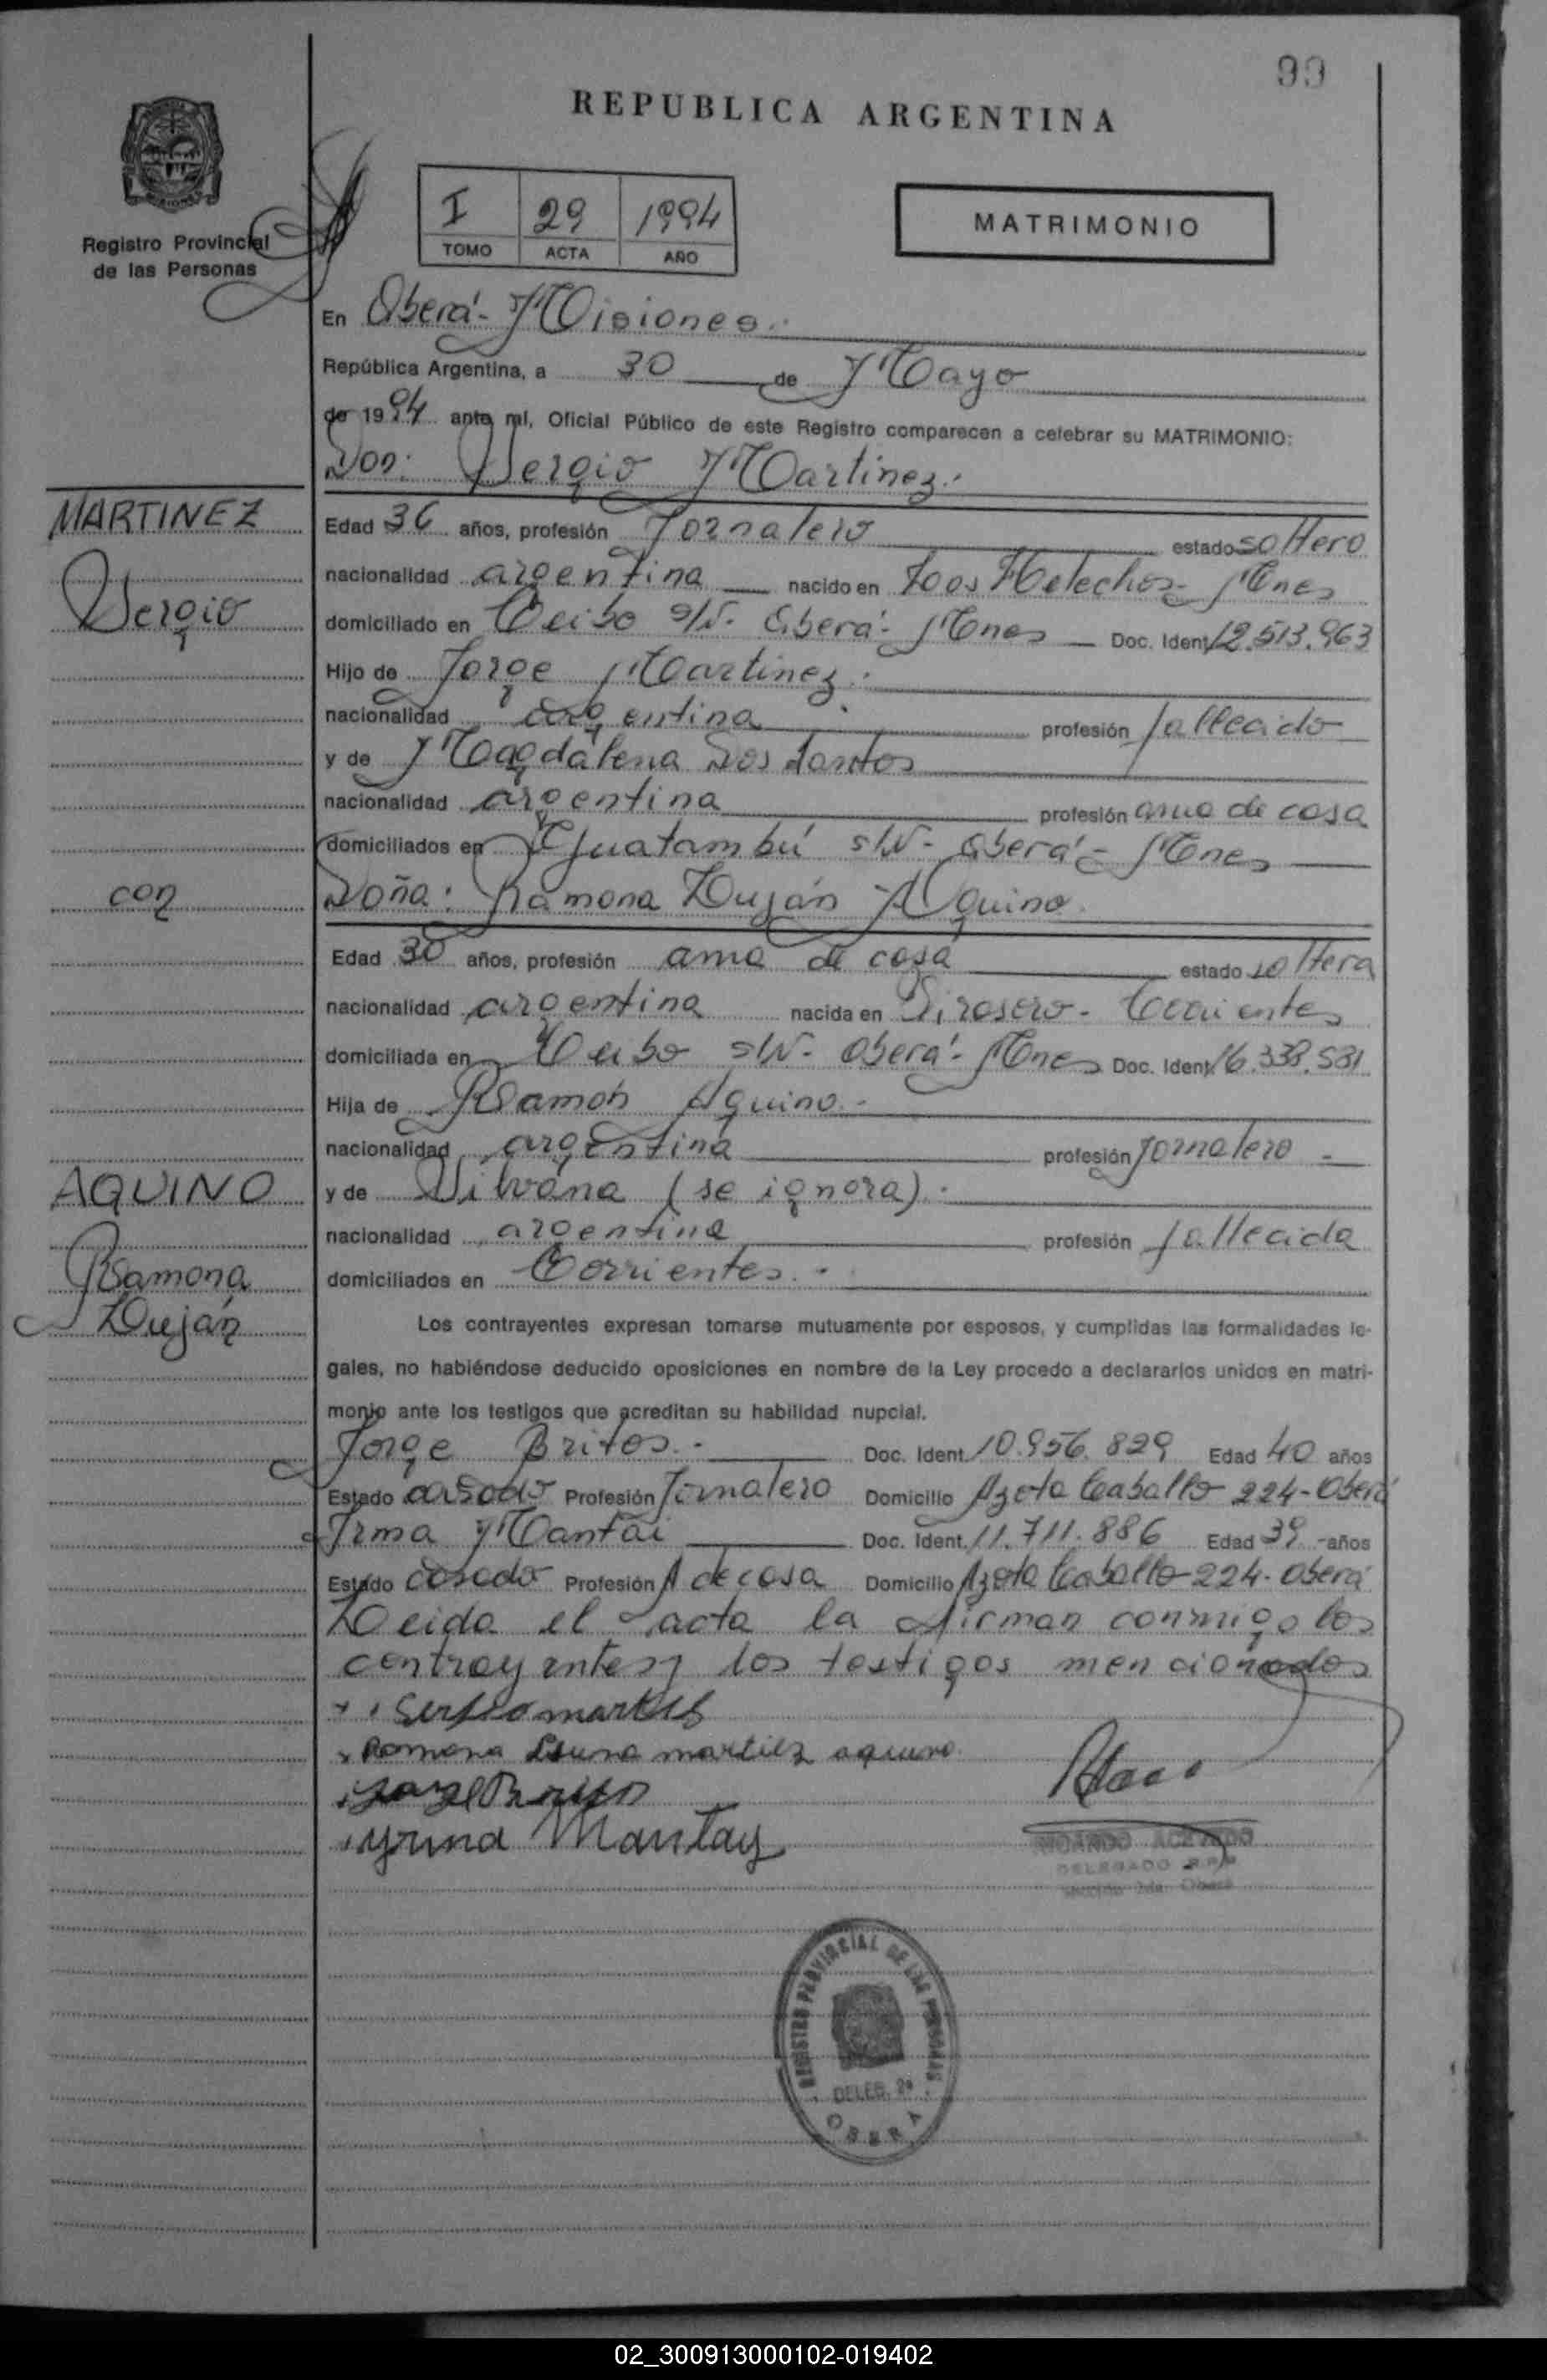 99
REPUBLICA ARGENTINA
Registro Provincial
de las Personas
I 29 1994
TOMO ACTA AÑO
MATRIMONIO
En Oberá - Misiones.
República Argentina, a 30 de Mayo
de 1994 ante mí, Oficial Público de este Registro comparecen a celebrar su MATRIMONIO:
Don: Sergio Martinez.
MARTINEZ
Sergio
Edad 36 años, profesión Jornalero estado soltero
nacionalidad argentina nacido en Los Helechos - Mnes
domiciliado en Ceibo s/N. Oberá - Mnes Doc. Ident. 12.513.963
Hijo de Jorge Martinez.
nacionalidad argentina profesión fallecido
y de Magdalena Dos Santos
nacionalidad argentina profesión ama de casa
domiciliados en Guatambú s/N - Oberá - Mnes
con
Doña: Ramona Luján Aquino.
Edad 30 años, profesión ama de casa estado soltera
nacionalidad argentina nacida en Virasoro - Corrientes
domiciliada en Ceibo s/N - Oberá - Mnes Doc. Ident. 16.338.531
Hija de Ramón Aquino.
nacionalidad argentina profesión Jornalero -
AQUINO
Ramona
Luján
y de Silvana (se ignora).
nacionalidad argentina profesión fallecida
domiciliados en Corrientes.
Los contrayentes expresan tomarse mutuamente por esposos, y cumplidas las formalidades le-
gales, no habiéndose deducido oposiciones en nombre de la Ley procedo a declararlos unidos en matri-
monio ante los testigos que acreditan su habilidad nupcial.
Jorge Britos. Doc. Ident. 10.956.829 Edad 40 años
Estado casado Profesión Jornalero Domicilio Azota Caballo 224 - Oberá
Irma Mantai Doc. Ident. 11.711.886 Edad 39 años
Estado casado Profesión A de casa Domicilio Azota Caballo 224 - Oberá
Leida el acta la firman conmigo los
contrayentes y los testigos mencionados
Ramona martiez aquino
yrma Mantay
RICARDO ACEVEDO
DELEGADO R.P.P
Sección 2da. Oberá
REGISTRO PROVINCIAL DE LAS PERSONAS
DELEG. 2a
OBERA
02_300913000102-019402